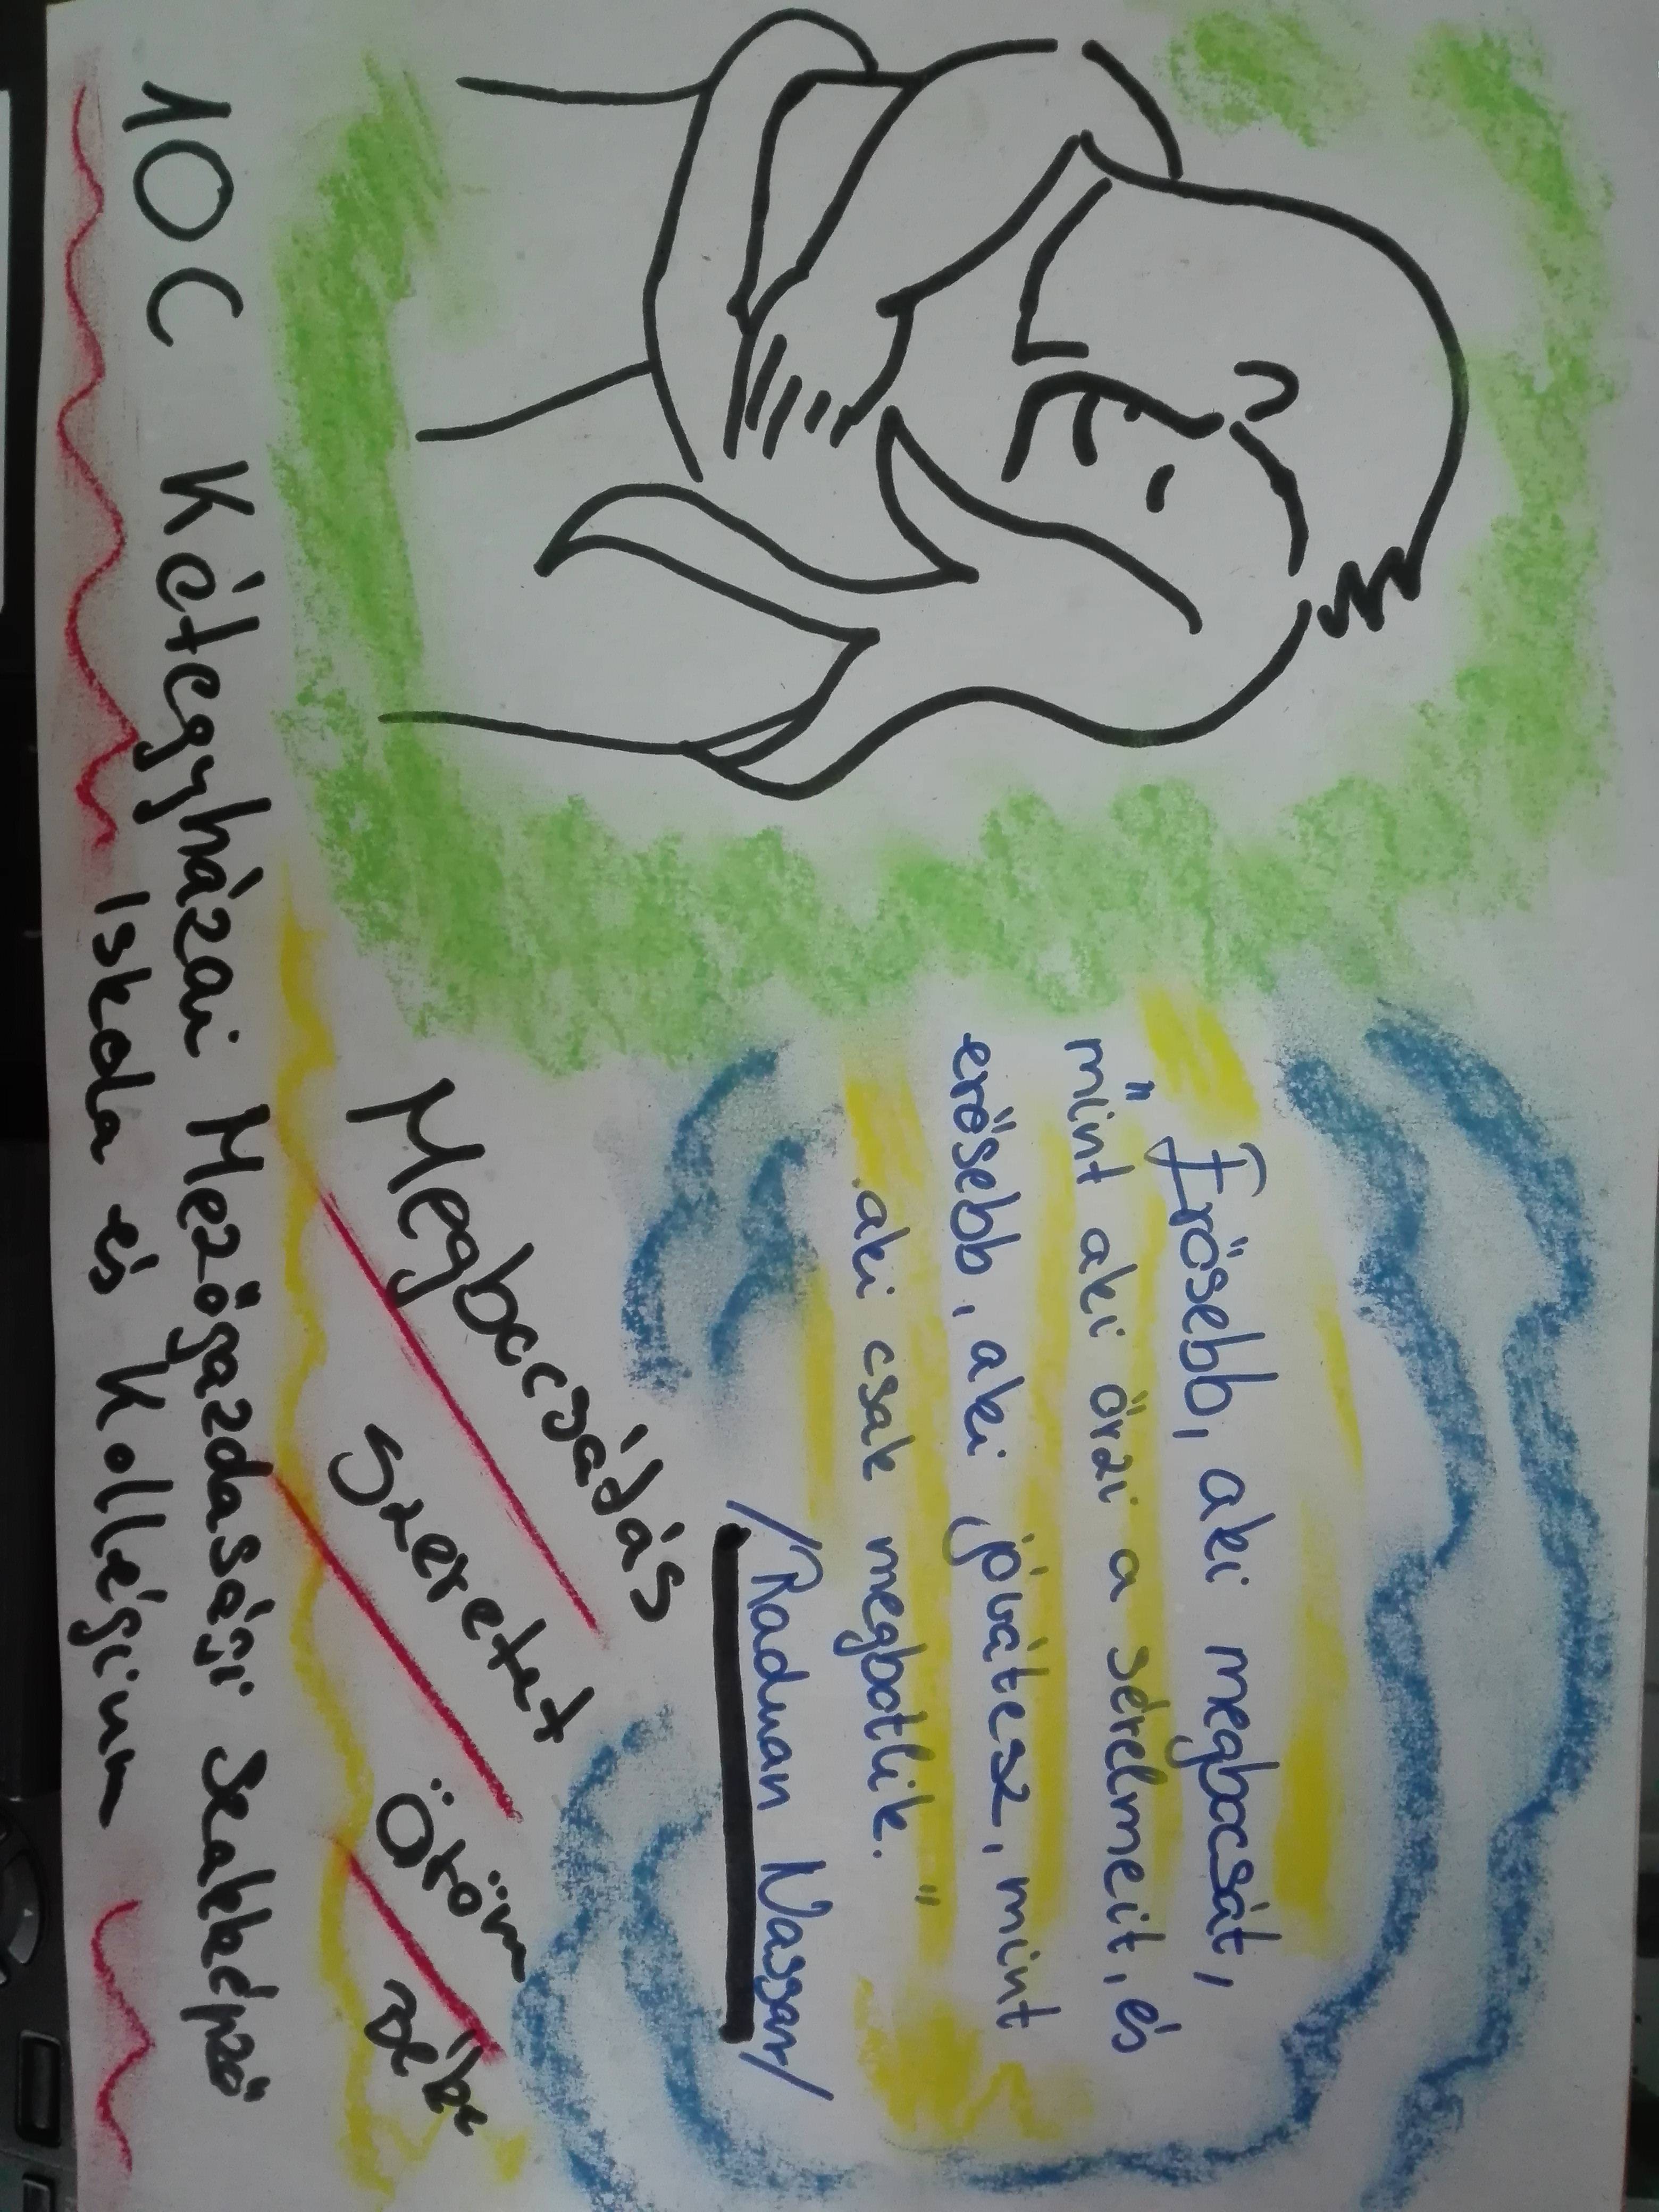 „Erősebb, aki megbocsát,
mint aki őrzi a sérelmeit, és
erősebb, aki jóvátesz, mint
aki csak megbotlik."
/Raduan Nassar/
Megbocsátás
Szeretet
Öröm
Béke
10C Kétegyházai Mezőgazdasági Szakképző
Iskola és Kollégium